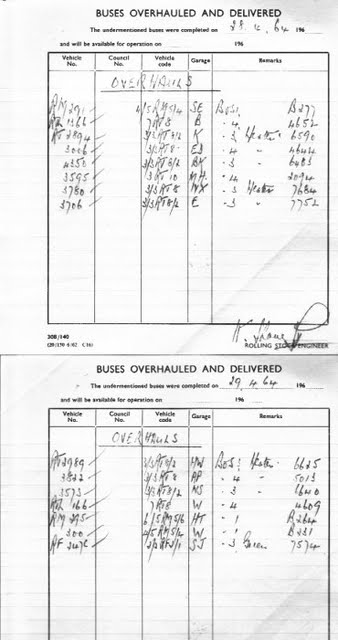 BUSES OVERHAULED AND DELIVERED
The undermentioned buses were completed on 28. 4. 64 196
and will be available for operation on 196
Vehicle No. Council No. Vehicle code Garage Remarks
OVERHAULS
RM 291 4/5 RM5/4 SE BODS: B277
1366 7RT8 B - 4 4652
RT 2894 3/3 RT8/2 K - 3 Heater 6590
3006 3/3 RT8 - 4 " 4644
4350 3/3 RT8/2 BK - 3 " 6483
3595 3 RT 10 MH - 4 2094
3780 3/3 RT8 NX - 3 Heater 7684
3706 3/3 RT8/2 E - 3 " 7752
308/140
ROLLING STOCK ENGINEER
BUSES OVERHAULED AND DELIVERED
The undermentioned buses were completed on 29 4 64 196
and will be available for operation on 196
Vehicle No. Council No. Vehicle code Garage Remarks
OVERHAULS
RT 2989 3/3 RT8/2 HW BODS: Heater 6625
3822 3/3 RT8 AP - 4 " 5013
3573 3/3 RT8/2 NS - 3 " 1640
166 7RT8 W - 4 4609
RM 295 6/5 RM5/6 HT - 1 B264
300 4/5 RM5/4 W - 1 B231
RF SJ - 3 Green 7574